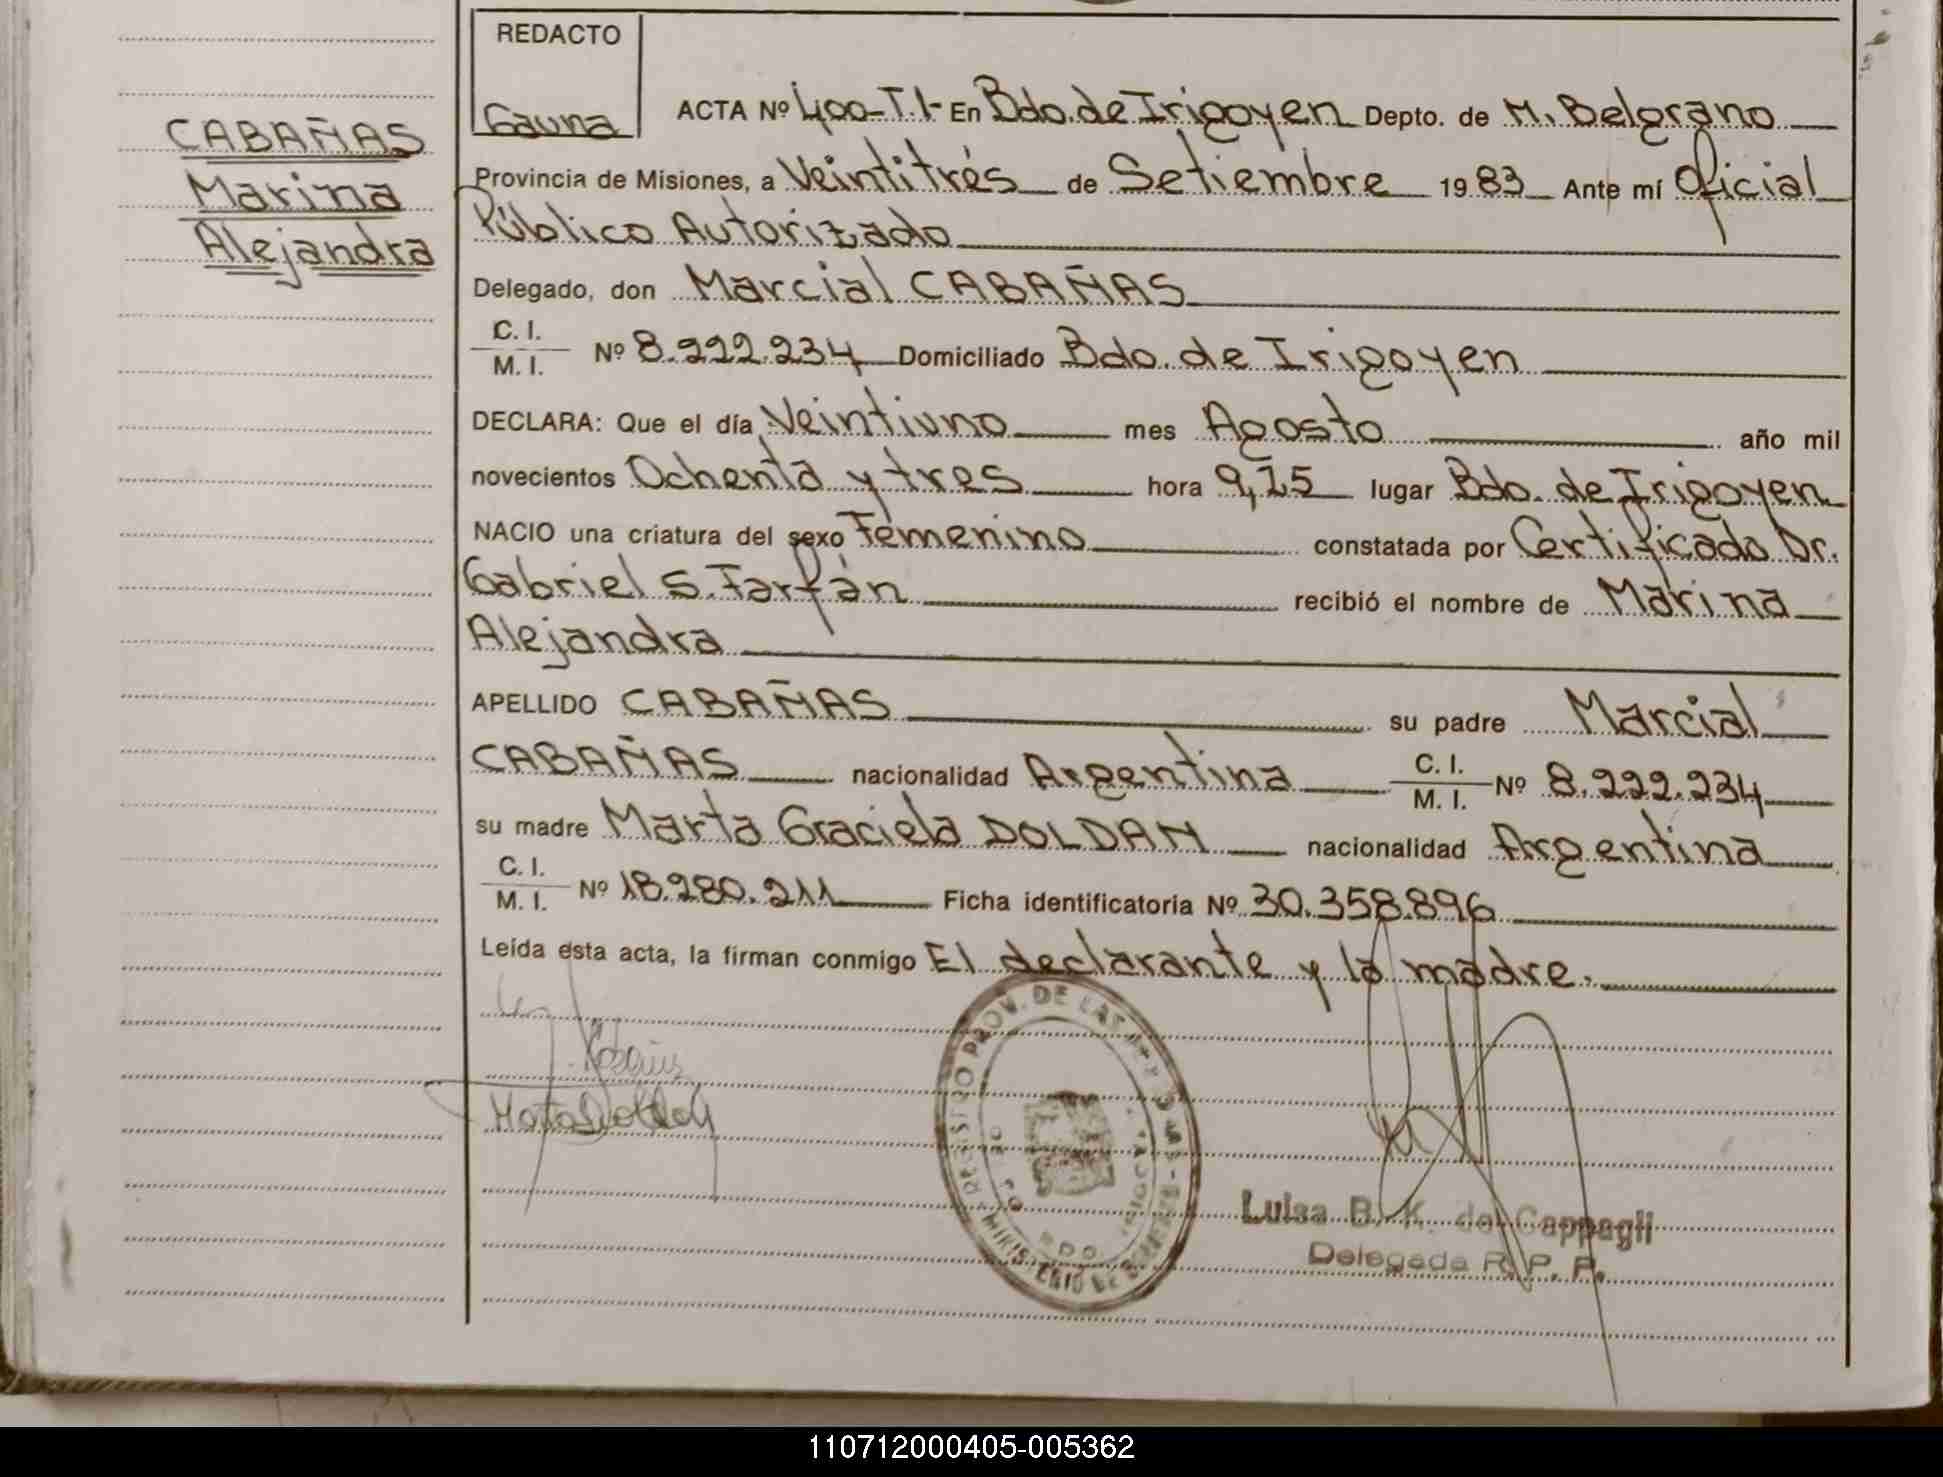 REDACTO
Gauna
CABAÑAS
Marina
Alejandra
ACTA Nº 400-T.I- En Bdo. de Irigoyen Depto. de M. Belgrano
Provincia de Misiones, a Veintitrés de Setiembre 1983 Ante mí Oficial
Público Autorizado
Delegado, don Marcial CABAÑAS
C. I.
M. I. Nº 8.222.234 Domiciliado Bdo. de Irigoyen
DECLARA: Que el día Veintiuno mes Agosto año mil
novecientos Ochenta y tres hora 9,15 lugar Bdo. de Irigoyen
NACIO una criatura del sexo Femenino constatada por Certificado Dr.
Gabriel S. Farfán recibió el nombre de Marina
Alejandra
APELLIDO CABAÑAS su padre Marcial
CABAÑAS nacionalidad Argentina C. I. M. I. Nº 8.222.234
su madre Marta Graciela DOLDAN nacionalidad Argentina
C. I.
M. I. Nº 18.280.211 Ficha identificatoria Nº 30.358.896
Leída esta acta, la firman conmigo El declarante y la madre.
PROV. DE LAS
Luisa B. K. de Cappagli
Delegada R. P. P.
110712000405-005362